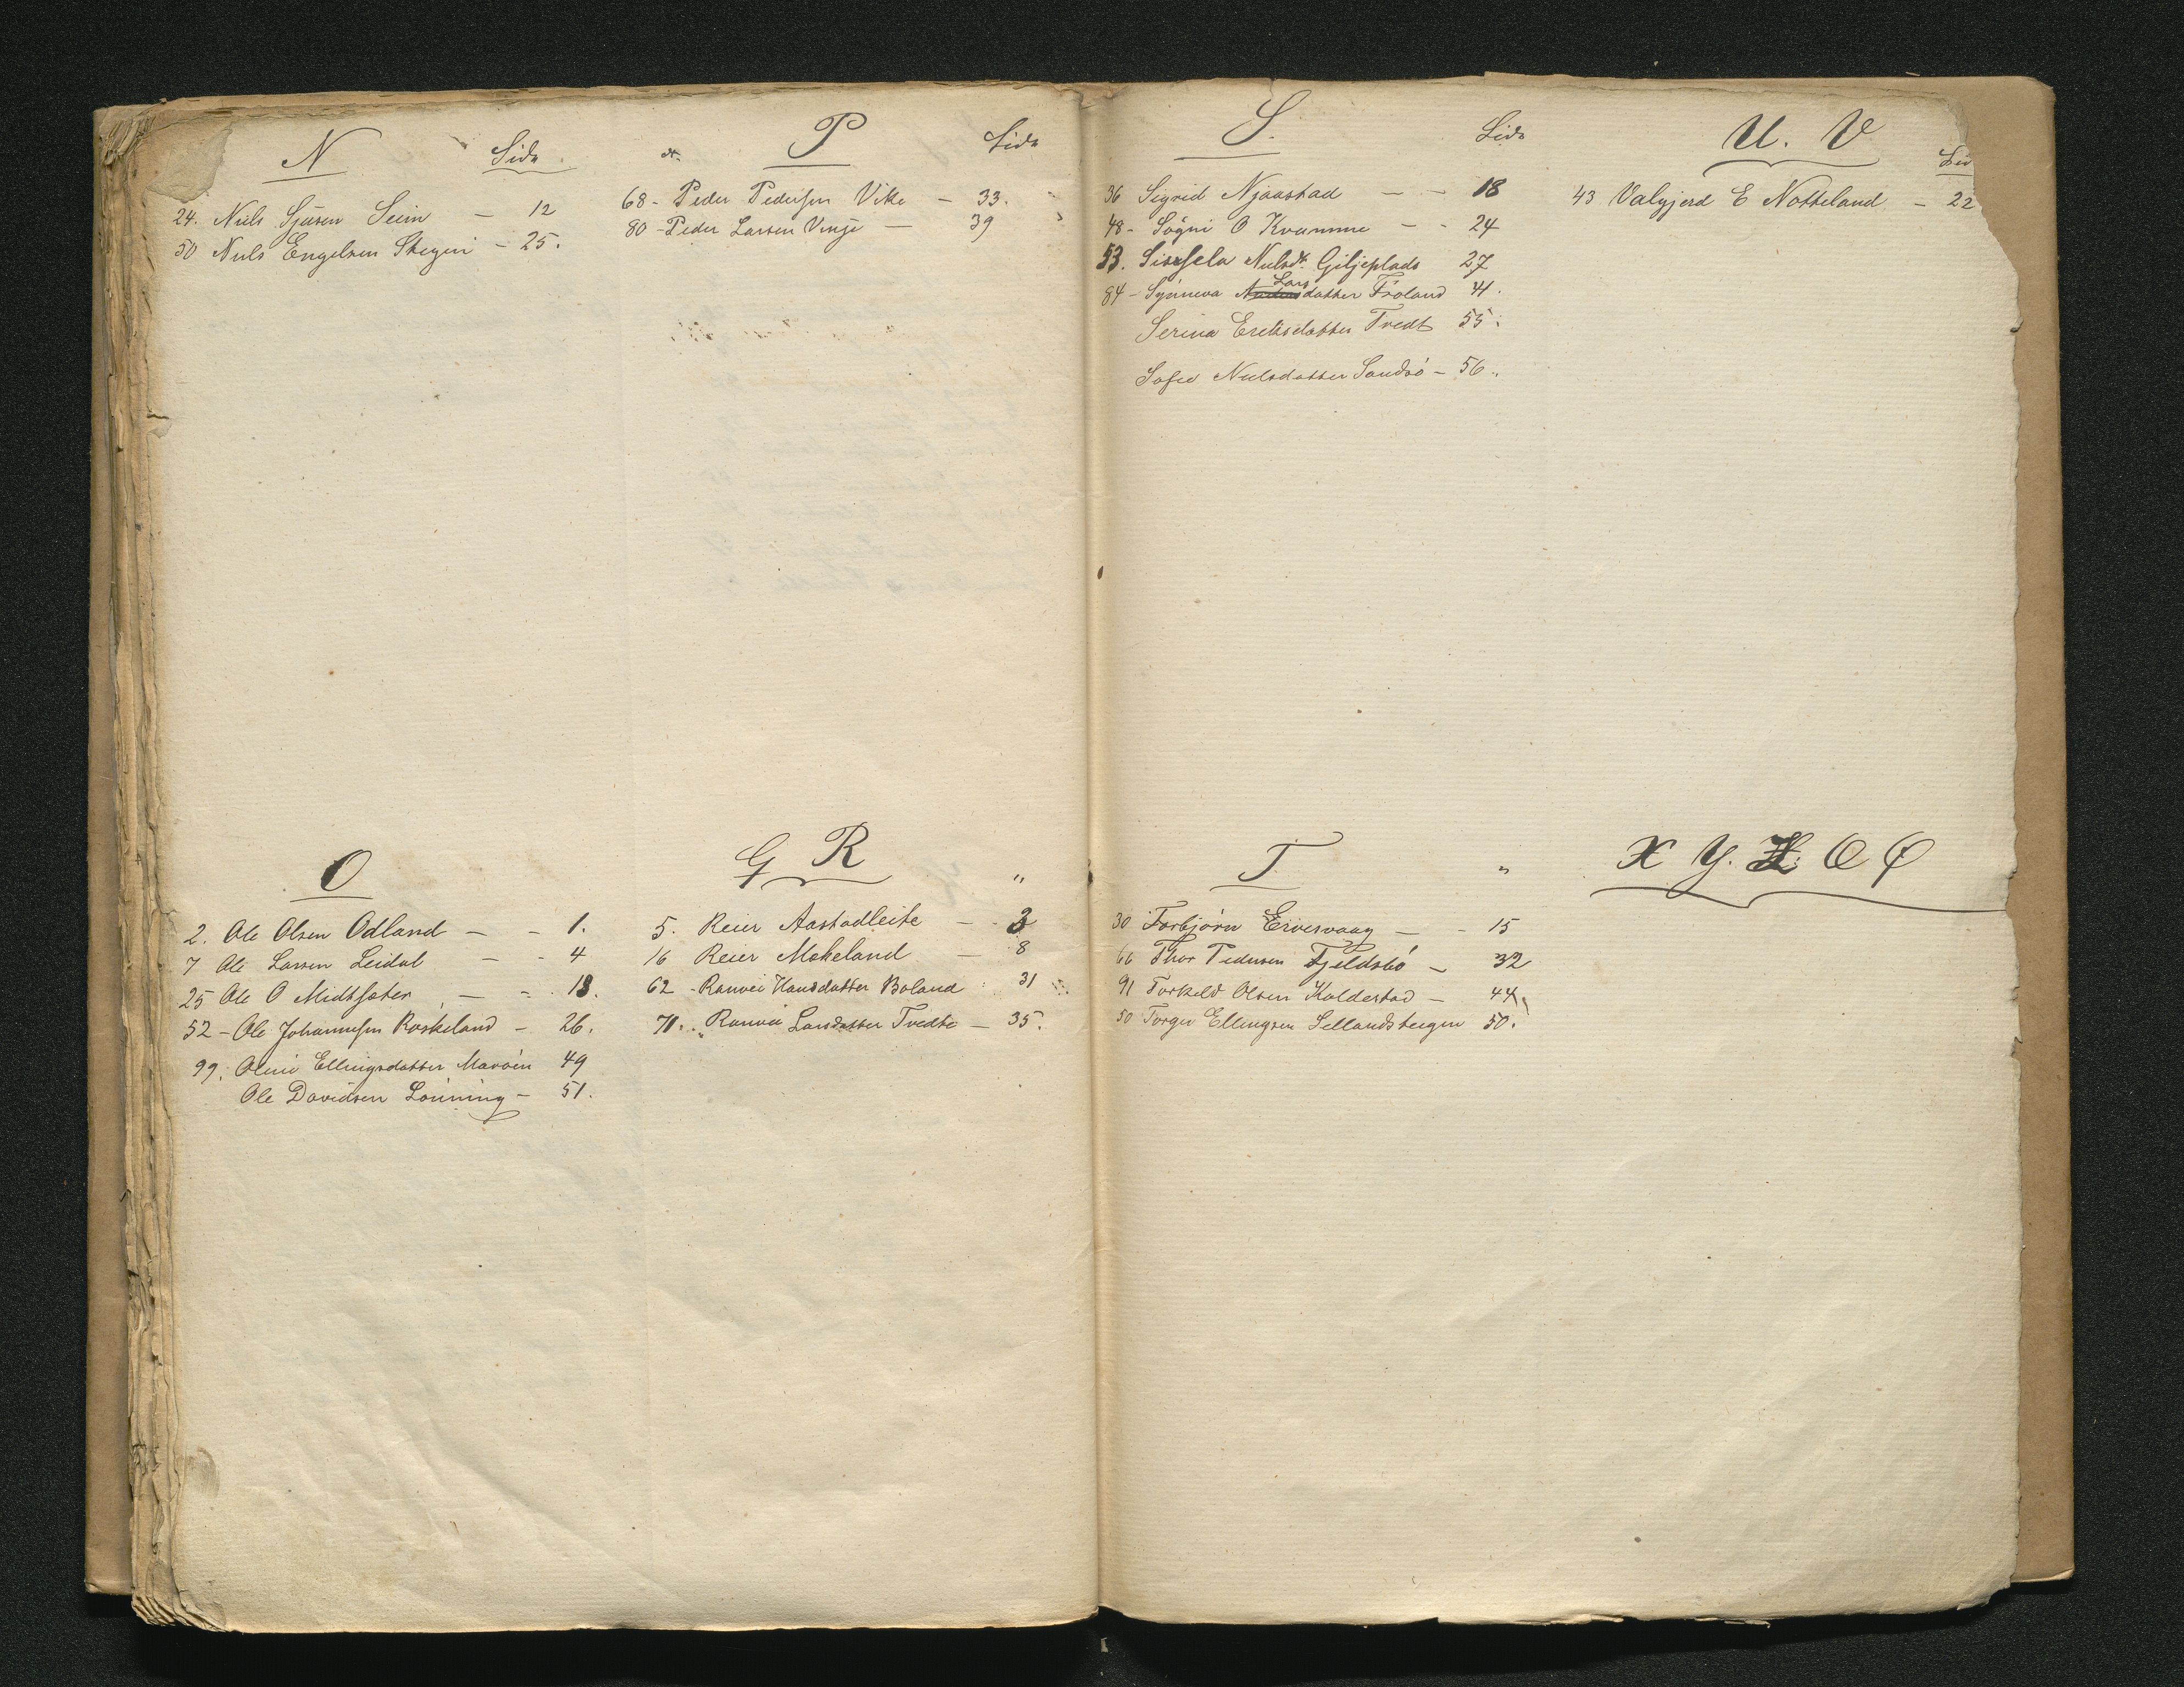 N Sida
24. Niels Sjursen Seim — 12
50 Niels Engelsen Skeyni – 25.
O
2. Ole Olsen Odland — – 1.
7 Ole Larsen Leidal — – 4
25 Ole O Midtsæter — – 13.
52 – Ole Johannesen Roskeland – 26.
99. Oline Ellingsdatter Marøen 49
Ole Davidsen Lønning – 51.
N. P Sida
68 – Peder Pedersen Vike — 33.
80 – Peder Larsen Vinje — 39
Q R "
5. Reier Aastadleite — – 3
16 Reier Mokeland — 8
62 – Ranvei Hansdatter Boland 31
71. Ranvei Larsdatter Tvedte — 35.
S. Sida
36 Sigrid Njaastad — — 18
48 – Søgni O Kvamme — – 24
53. Sissela Nielsdt. Giljeplads 27
Lars
84 – Synneva datter Frøland 41.
Serina Eriksdatter Tvedt 55.
Sofie Nielsdatter Sandsø – 56.
T "
30 Torbjørn Eivesvaag — – 15
66 Thor Pedersen Fjeldsbø — 32
91 Torkeld Olsen Koldestad — 44.
50 Torger Ellingsen Sellandsteigen 50.
U. V Sid
43 Valgjerd E Notteland – 22
X Y. Z: Æ Ø